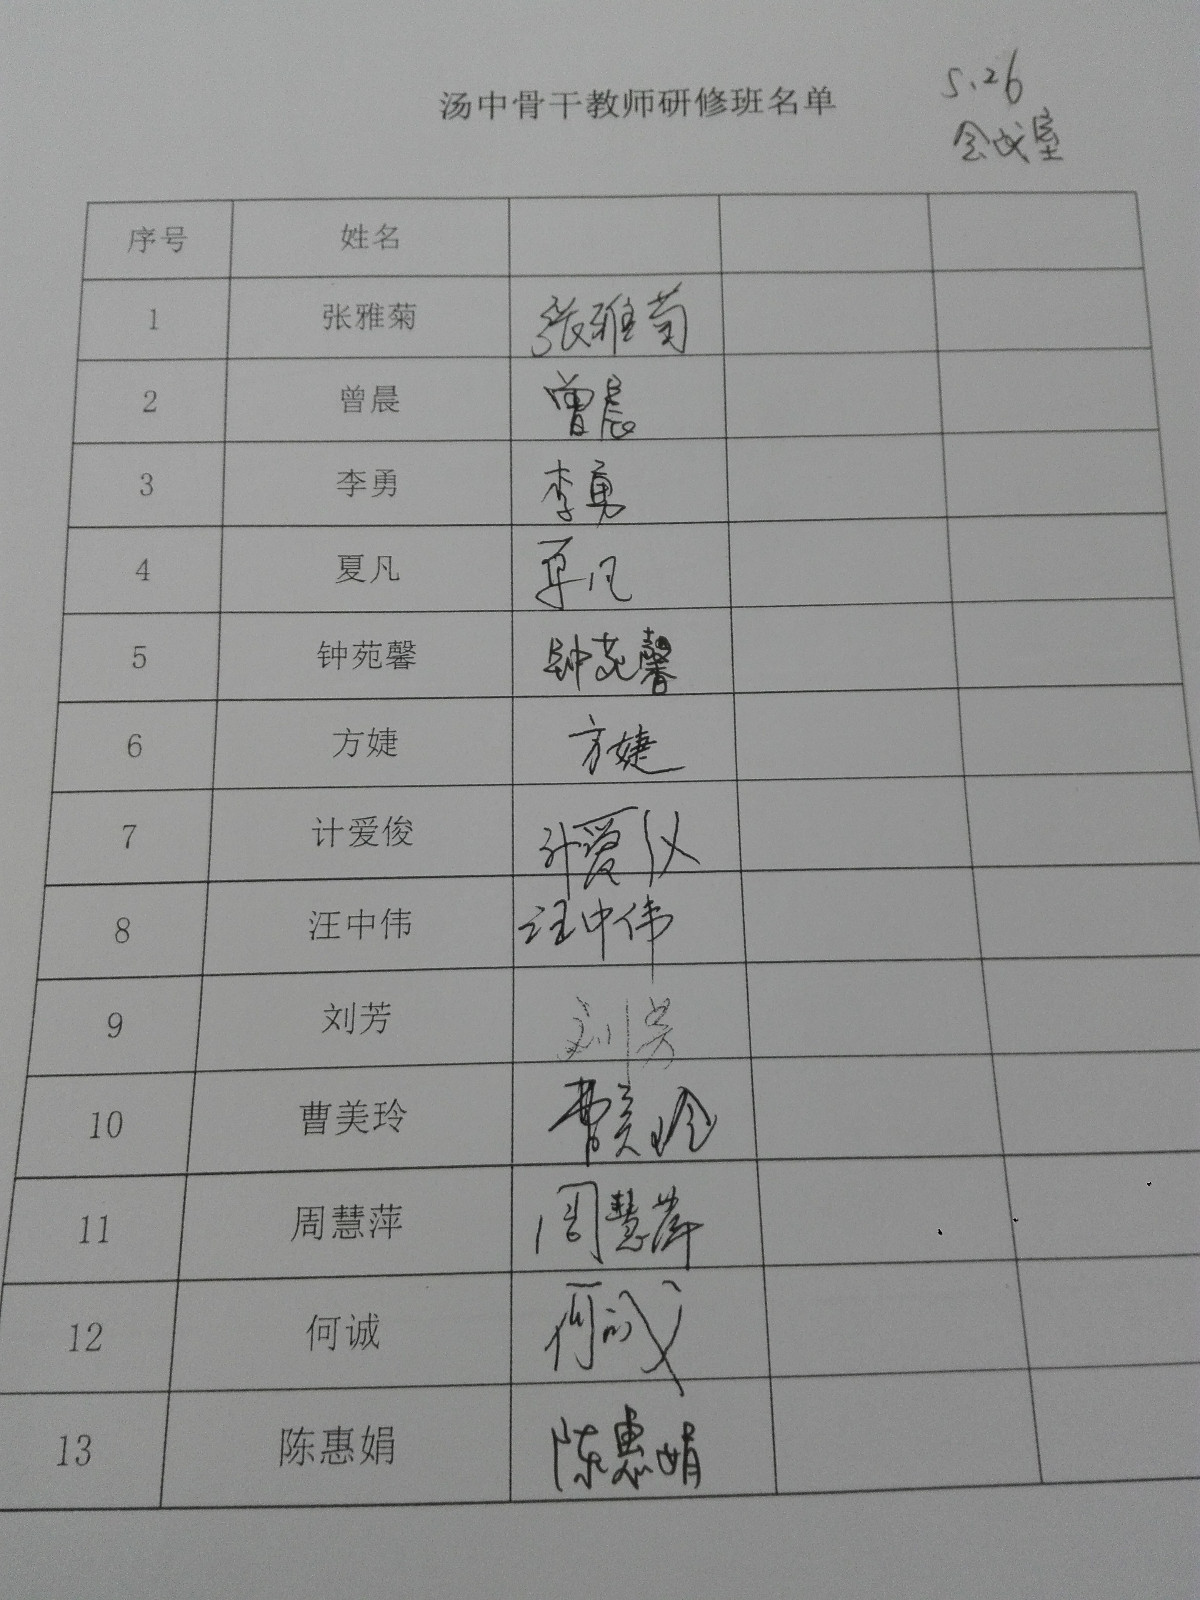 汤中骨干教师研修班名单
5.26
会议室
序号 姓名
1 张雅菊 张雅菊
2 曾晨 曾晨
3 李勇 李勇
4 夏凡 夏凡
5 钟苑馨 钟苑馨
6 方婕 方婕
7 计爱俊 计爱仪
8 汪中伟 汪中伟
9 刘芳 刘芳
10 曹美玲 曹美玲
11 周慧萍 周慧萍
12 何诚 何诚
13 陈惠娟 陈惠娟